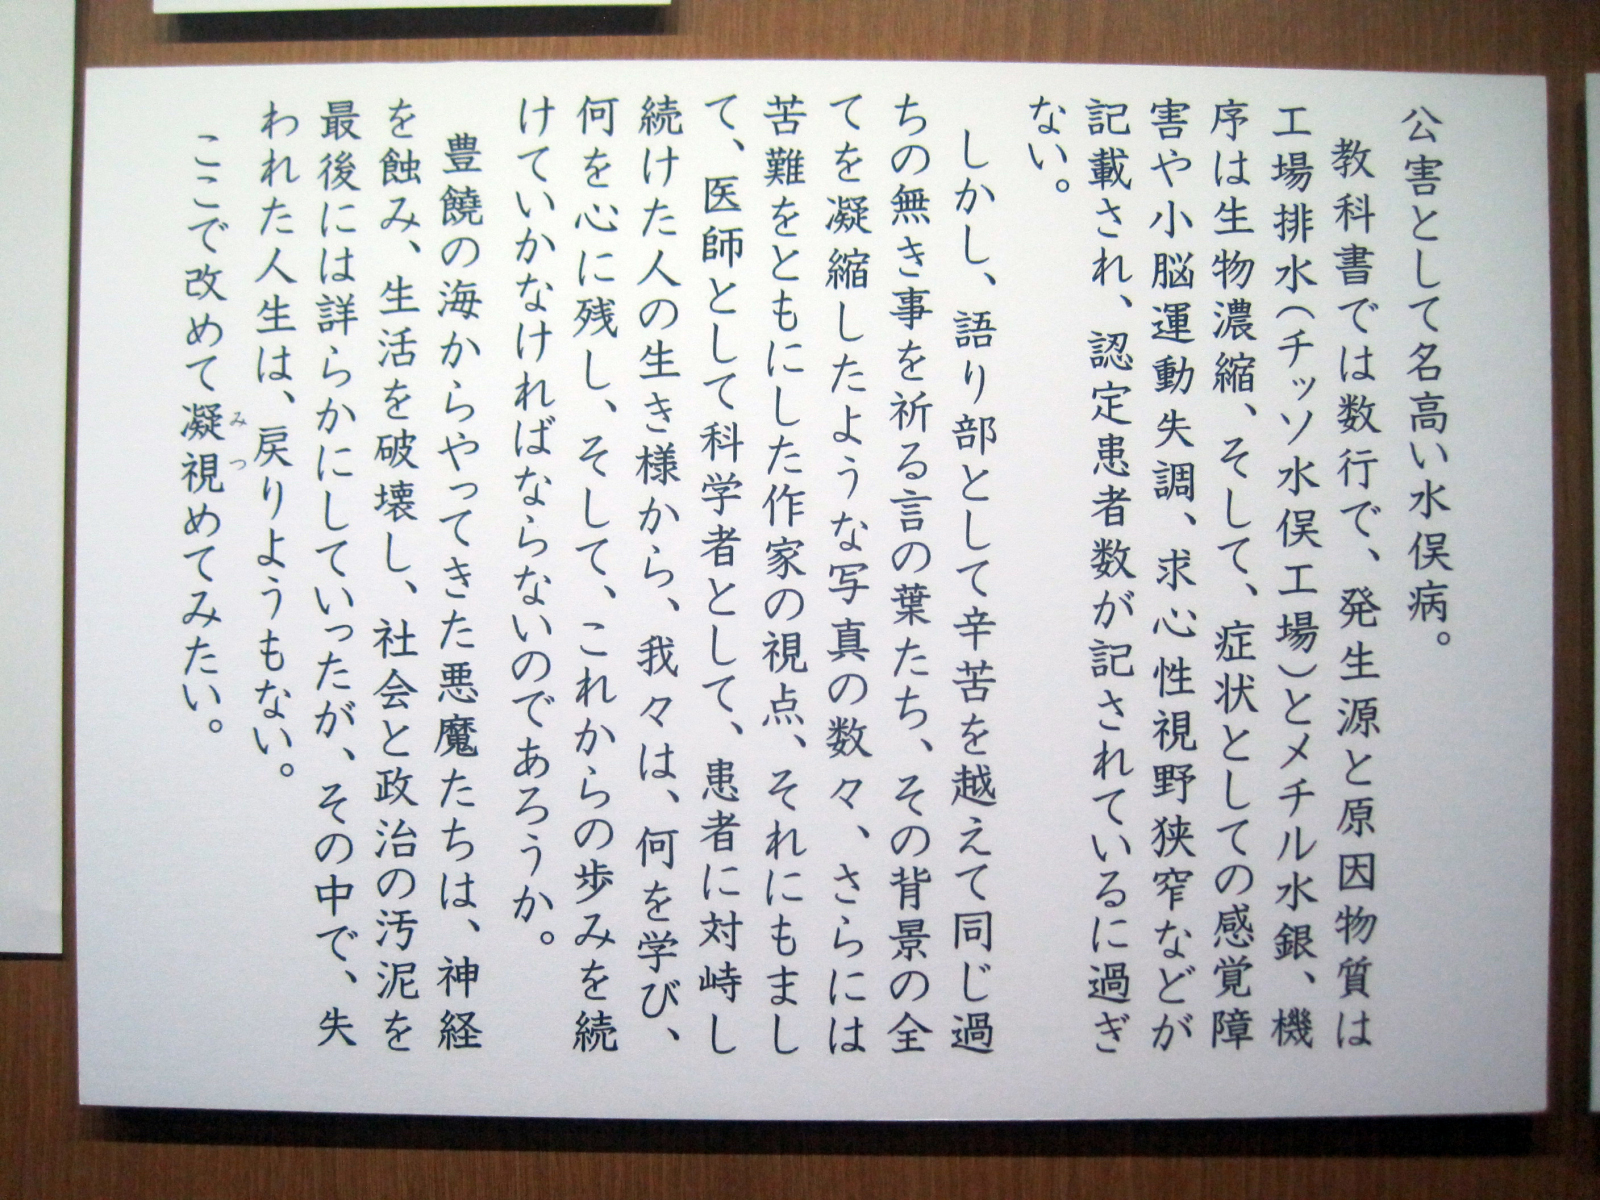 公害として名高い水俣病。
教科書では数行で、発生源と原因物質は
工場排水（チッソ水俣工場）とメチル水銀、機
序は生物濃縮、そして、症状としての感覚障
害や小脳運動失調、求心性視野狭窄などが
記載され、認定患者数が記されているに過ぎ
ない。
しかし、語り部として辛苦を越えて同じ過
ちの無き事を祈る言の葉たち、その背景の全
てを凝縮したような写真の数々、さらには
苦難をともにした作家の視点、それにもまし
て、医師として科学者として、患者に対峙し
続けた人の生き様から、我々は、何を学び、
何を心に残し、そして、これからの歩みを続
けていかなければならないのであろうか。
豊饒の海からやってきた悪魔たちは、神経
を蝕み、生活を破壊し、社会と政治の汚泥を
最後には詳らかにしていったが、その中で、失
われた人生は、戻りようもない。
ここで改めて凝視めてみたい。
みつ